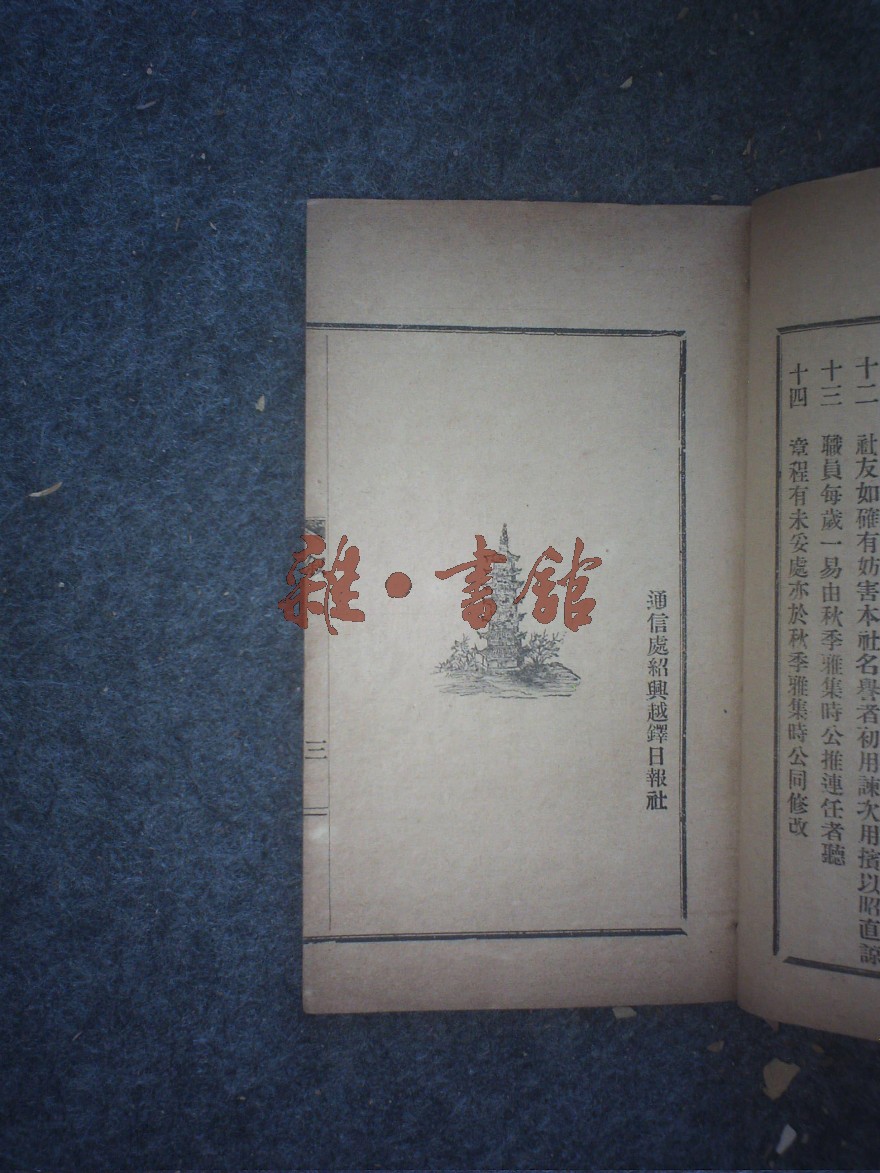 十二 社友如確有妨害本社名譽者初用諫次用擯以昭直諒
十三 職員每歲一易由秋季雅集時公推連任者聽
十四 章程有未妥處亦於秋季雅集時公同修改
通信處紹興越鐸日報社
三
雜·書館